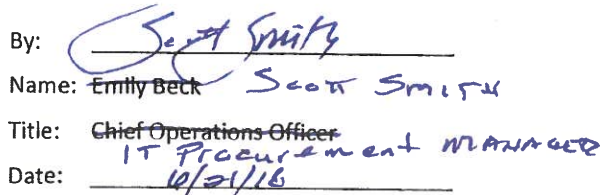 By: Scott Smith
Name: Emily Beck Scott Smith
Title: Chief Operations Officer
IT Procurement MANAGER
Date: 6/21/16